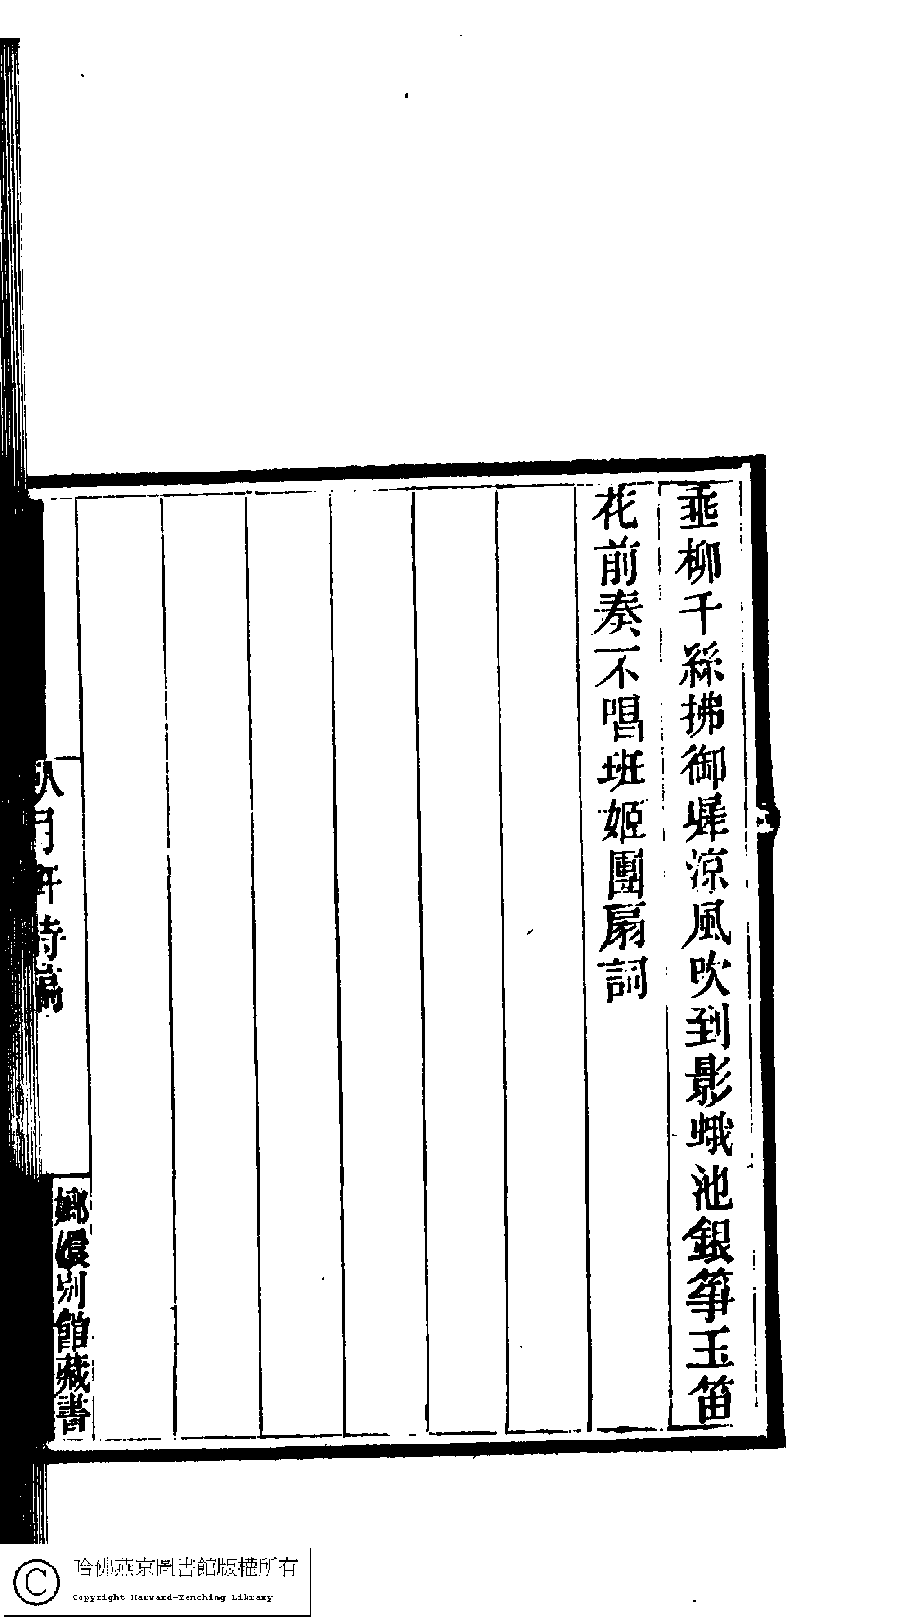 垂柳千絲拂御墀涼風吹到影蛾池銀箏玉笛
花前奏不唱班姬團扇詞
臥月軒詩稿
嫏嬛別館藏書
哈佛燕京圖書館版權所有
Copyright Harvard-Yenching Library